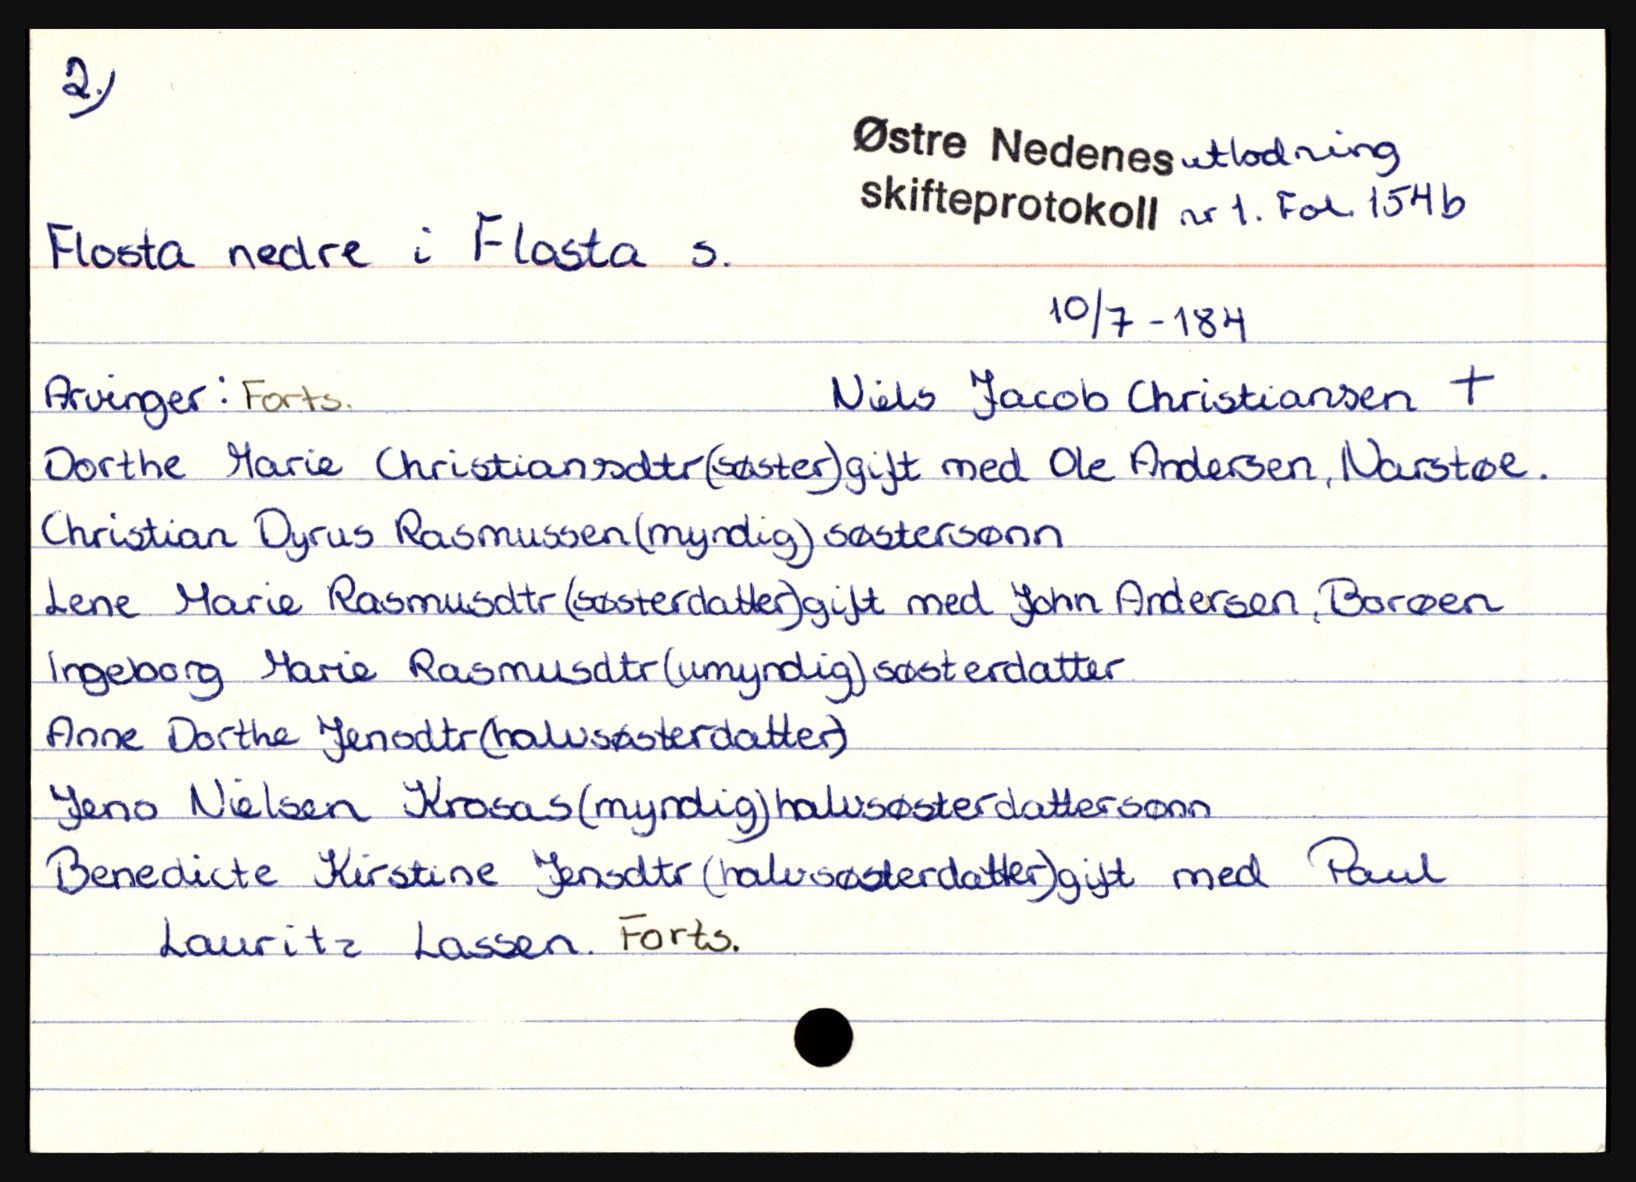 2.)
Østre Nedenes utlodning
skifteprotokoll nr 1. Fol. 154b
Flosta nedre i Flosta s.
10/7-184
Arvinger: Forts. Niels Jacob Christiansen +
Dorthe Marie Christiansdtr (søster) gift med Ole Andersen, Narstøe.
Christian Dyrus Rasmussen (myndig) søstersønn
Lene Marie Rasmusdtr (søsterdatter) gift med John Andersen, Borøen
Ingeborg Marie Rasmusdtr (umyndig) søsterdatter
Anne Dorthe Jensdtr (halvsøsterdatter)
Jens Nielsen Krosas (myndig) halvsøsterdattersønn
Benedicte Kirstine Jensdtr (halvsøsterdatter) gift med Paul
Lauritz Lassen. Forts.